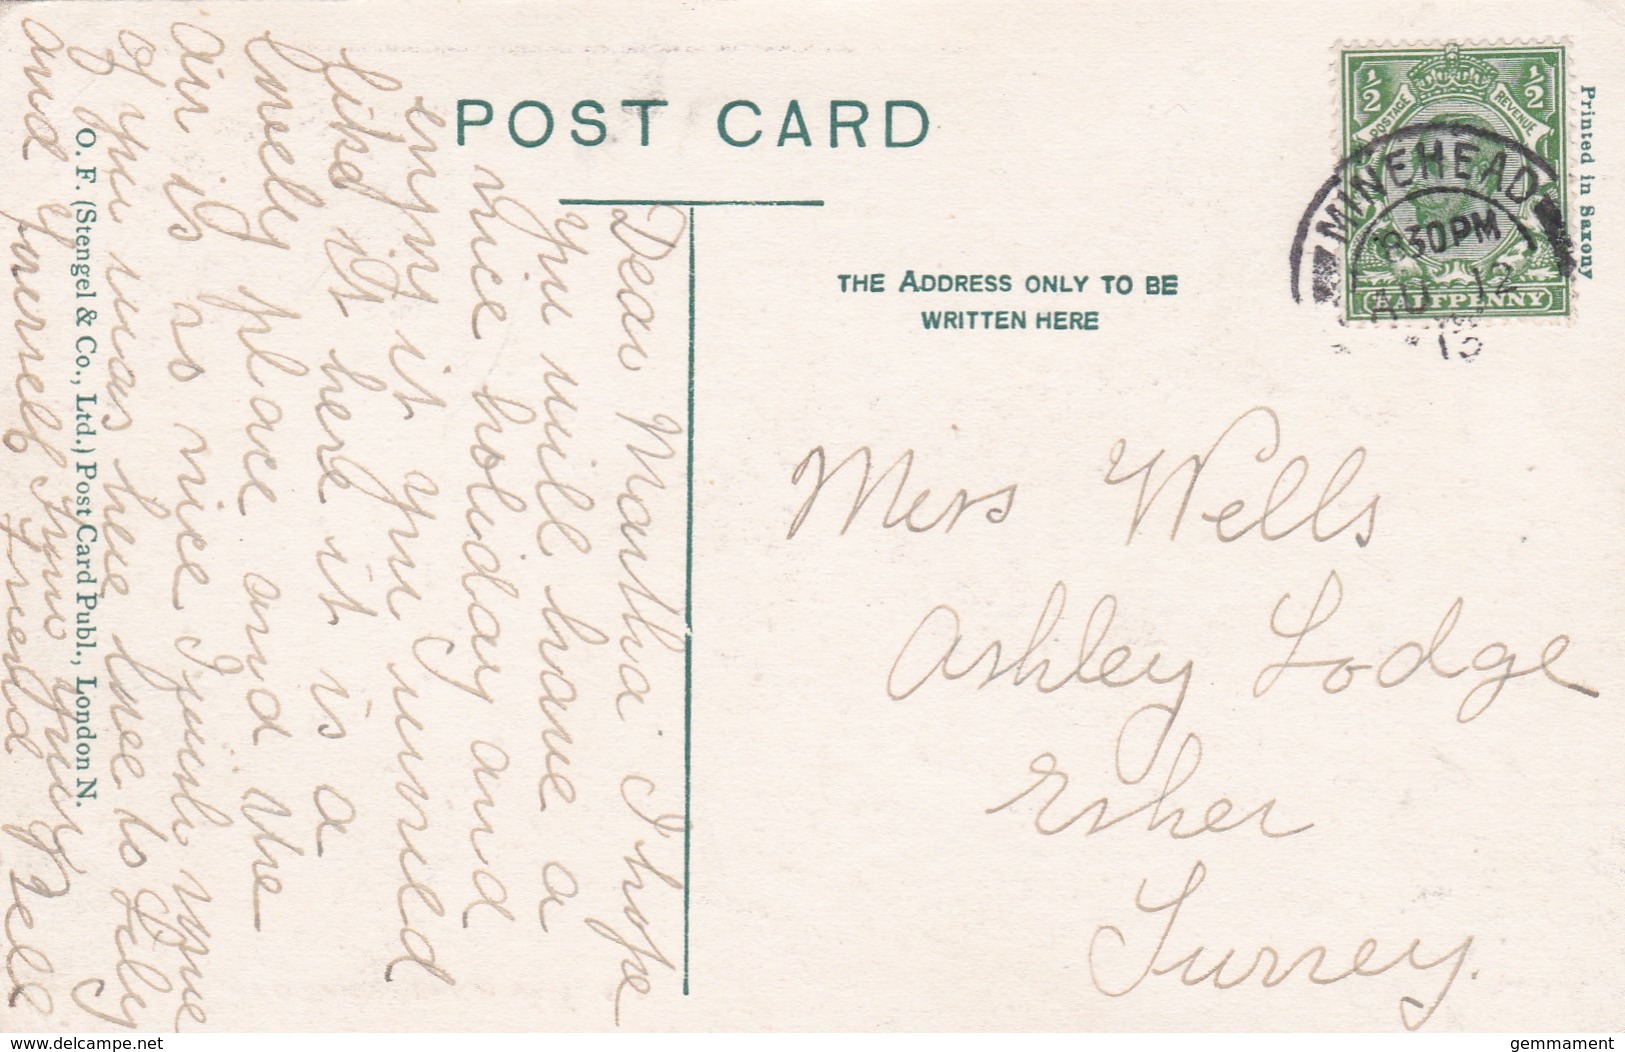 POST CARD
THE ADDRESS ONLY TO BE
WRITTEN HERE
Printed in Saxony
1/2
1/2
POSTAGE
REVENUE
HALFPENNY
MINEHEAD
8 30 PM
AU 12
Miss Wells
Ashley Lodge
Esher
Surrey.
Dear Martha I hope
you will have a
nice holiday and
enjoy it you would
like it here it is a
lovely place and the
air is so nice I wish
of you was here love to Lily
and yourself from your
Friend Nell
O. F. (Stengel & Co., Ltd.) Post Card Publ., London N.
www.delcampe.net
gemmament